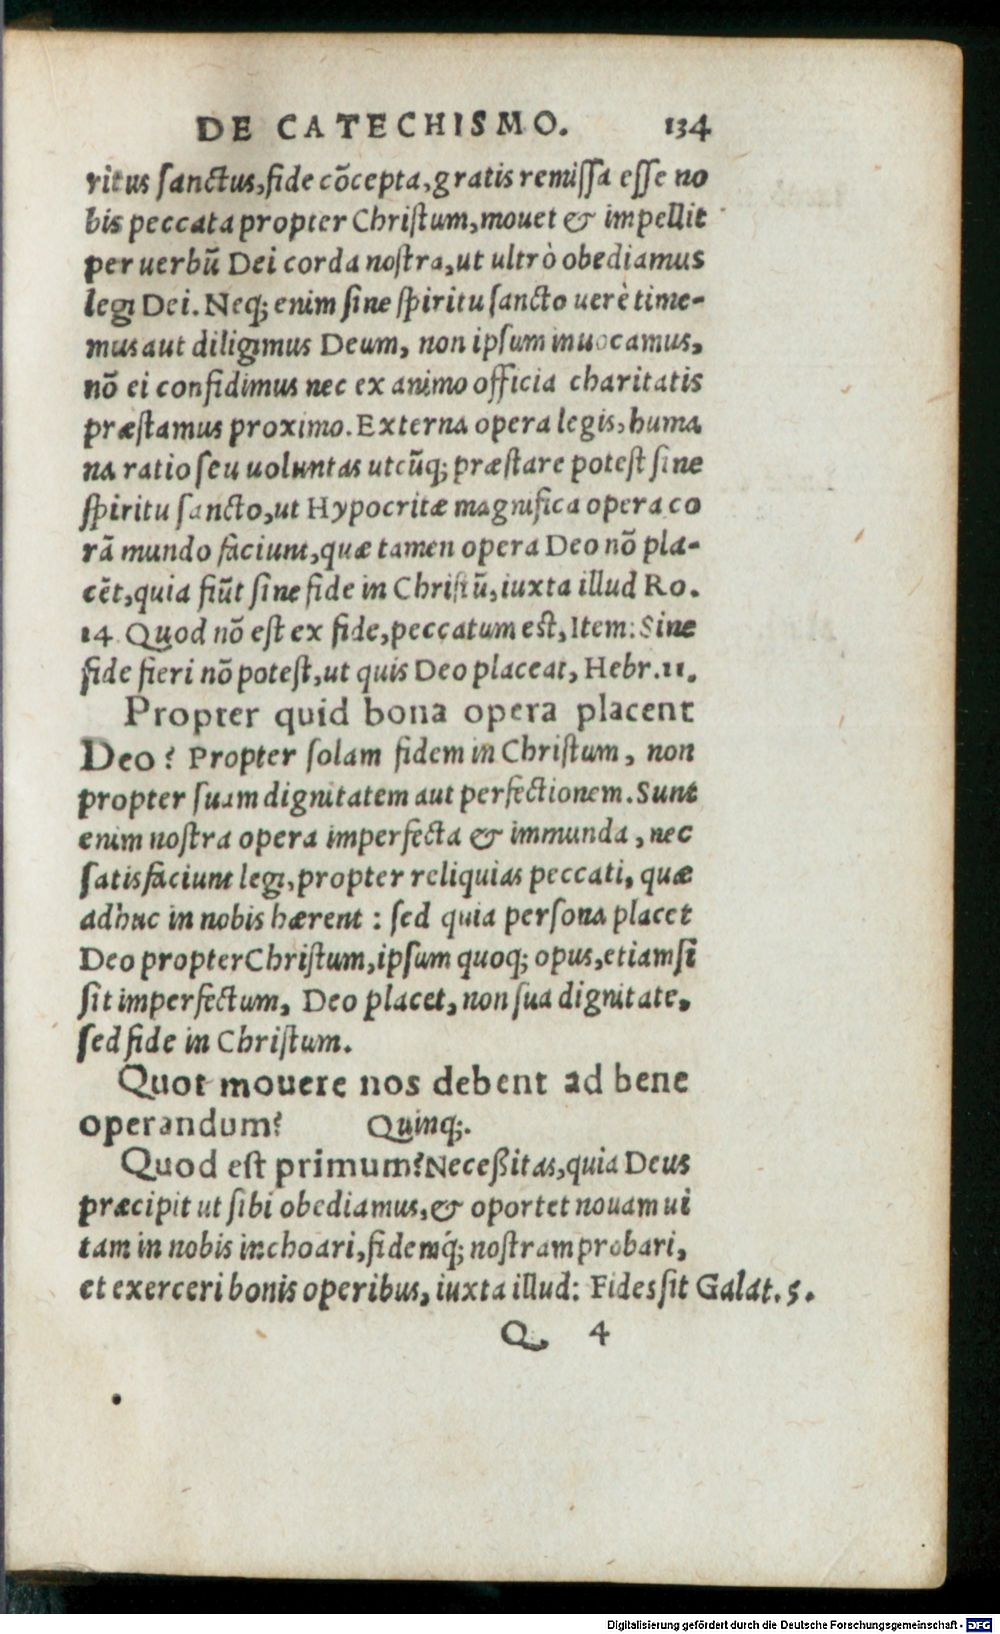 DE CATECHISMO. 134
ritus ſanctus, fide cõcepta, gratis remiſſa eſſe no
bis peccata propter Chriſtum, mouet & impellit
per uerbũ Dei corda noſtra, ut ultrò obediamus
legi Dei. Neq; enim ſine ſpiritu ſancto uerè time-
mus aut diligimus Deum, non ipſum inuocamus,
nõ ei confidimus nec ex animo officia charitatis
præſtamus proximo. Externa opera legis, huma
na ratio ſeu uoluntas utcũq; præſtare poteſt ſine
ſpiritu ſancto, ut Hypocritæ magnifica opera co
rã mundo faciunt, quæ tamen opera Deo nõ pla-
cẽt, quia fiũt ſine fide in Chriſtũ, iuxta illud Ro.
14 Quod nõ eſt ex fide, peccatum eſt, Item: Sine
fide fieri nõ poteſt, ut quis Deo placeat, Hebr. 11.
Propter quid bona opera placent
Deo? Propter ſolam fidem in Chriſtum, non
propter ſuam dignitatem aut perfectionem. Sunt
enim noſtra opera imperfecta & immunda, nec
ſatisfaciunt legi, propter reliquias peccati, quæ
adhuc in nobis hærent: ſed quia perſona placet
Deo propter Chriſtum, ipſum quoq; opus, etiamſi
ſit imperfectum, Deo placet, non ſua dignitate,
ſed fide in Chriſtum.
Quot mouere nos debent ad bene
operandum? Quinq;.
Quod eſt primum? Neceßitas, quia Deus
præcipit ut ſibi obediamus, & oportet nouam ui
tam in nobis inchoari, fidemq́; noſtram probari,
et exerceri bonis operibus, iuxta illud: Fides ſit Galat. 5.
Q 4
Digitalisierung gefördert durch die Deutsche Forschungsgemeinschaft - DFG